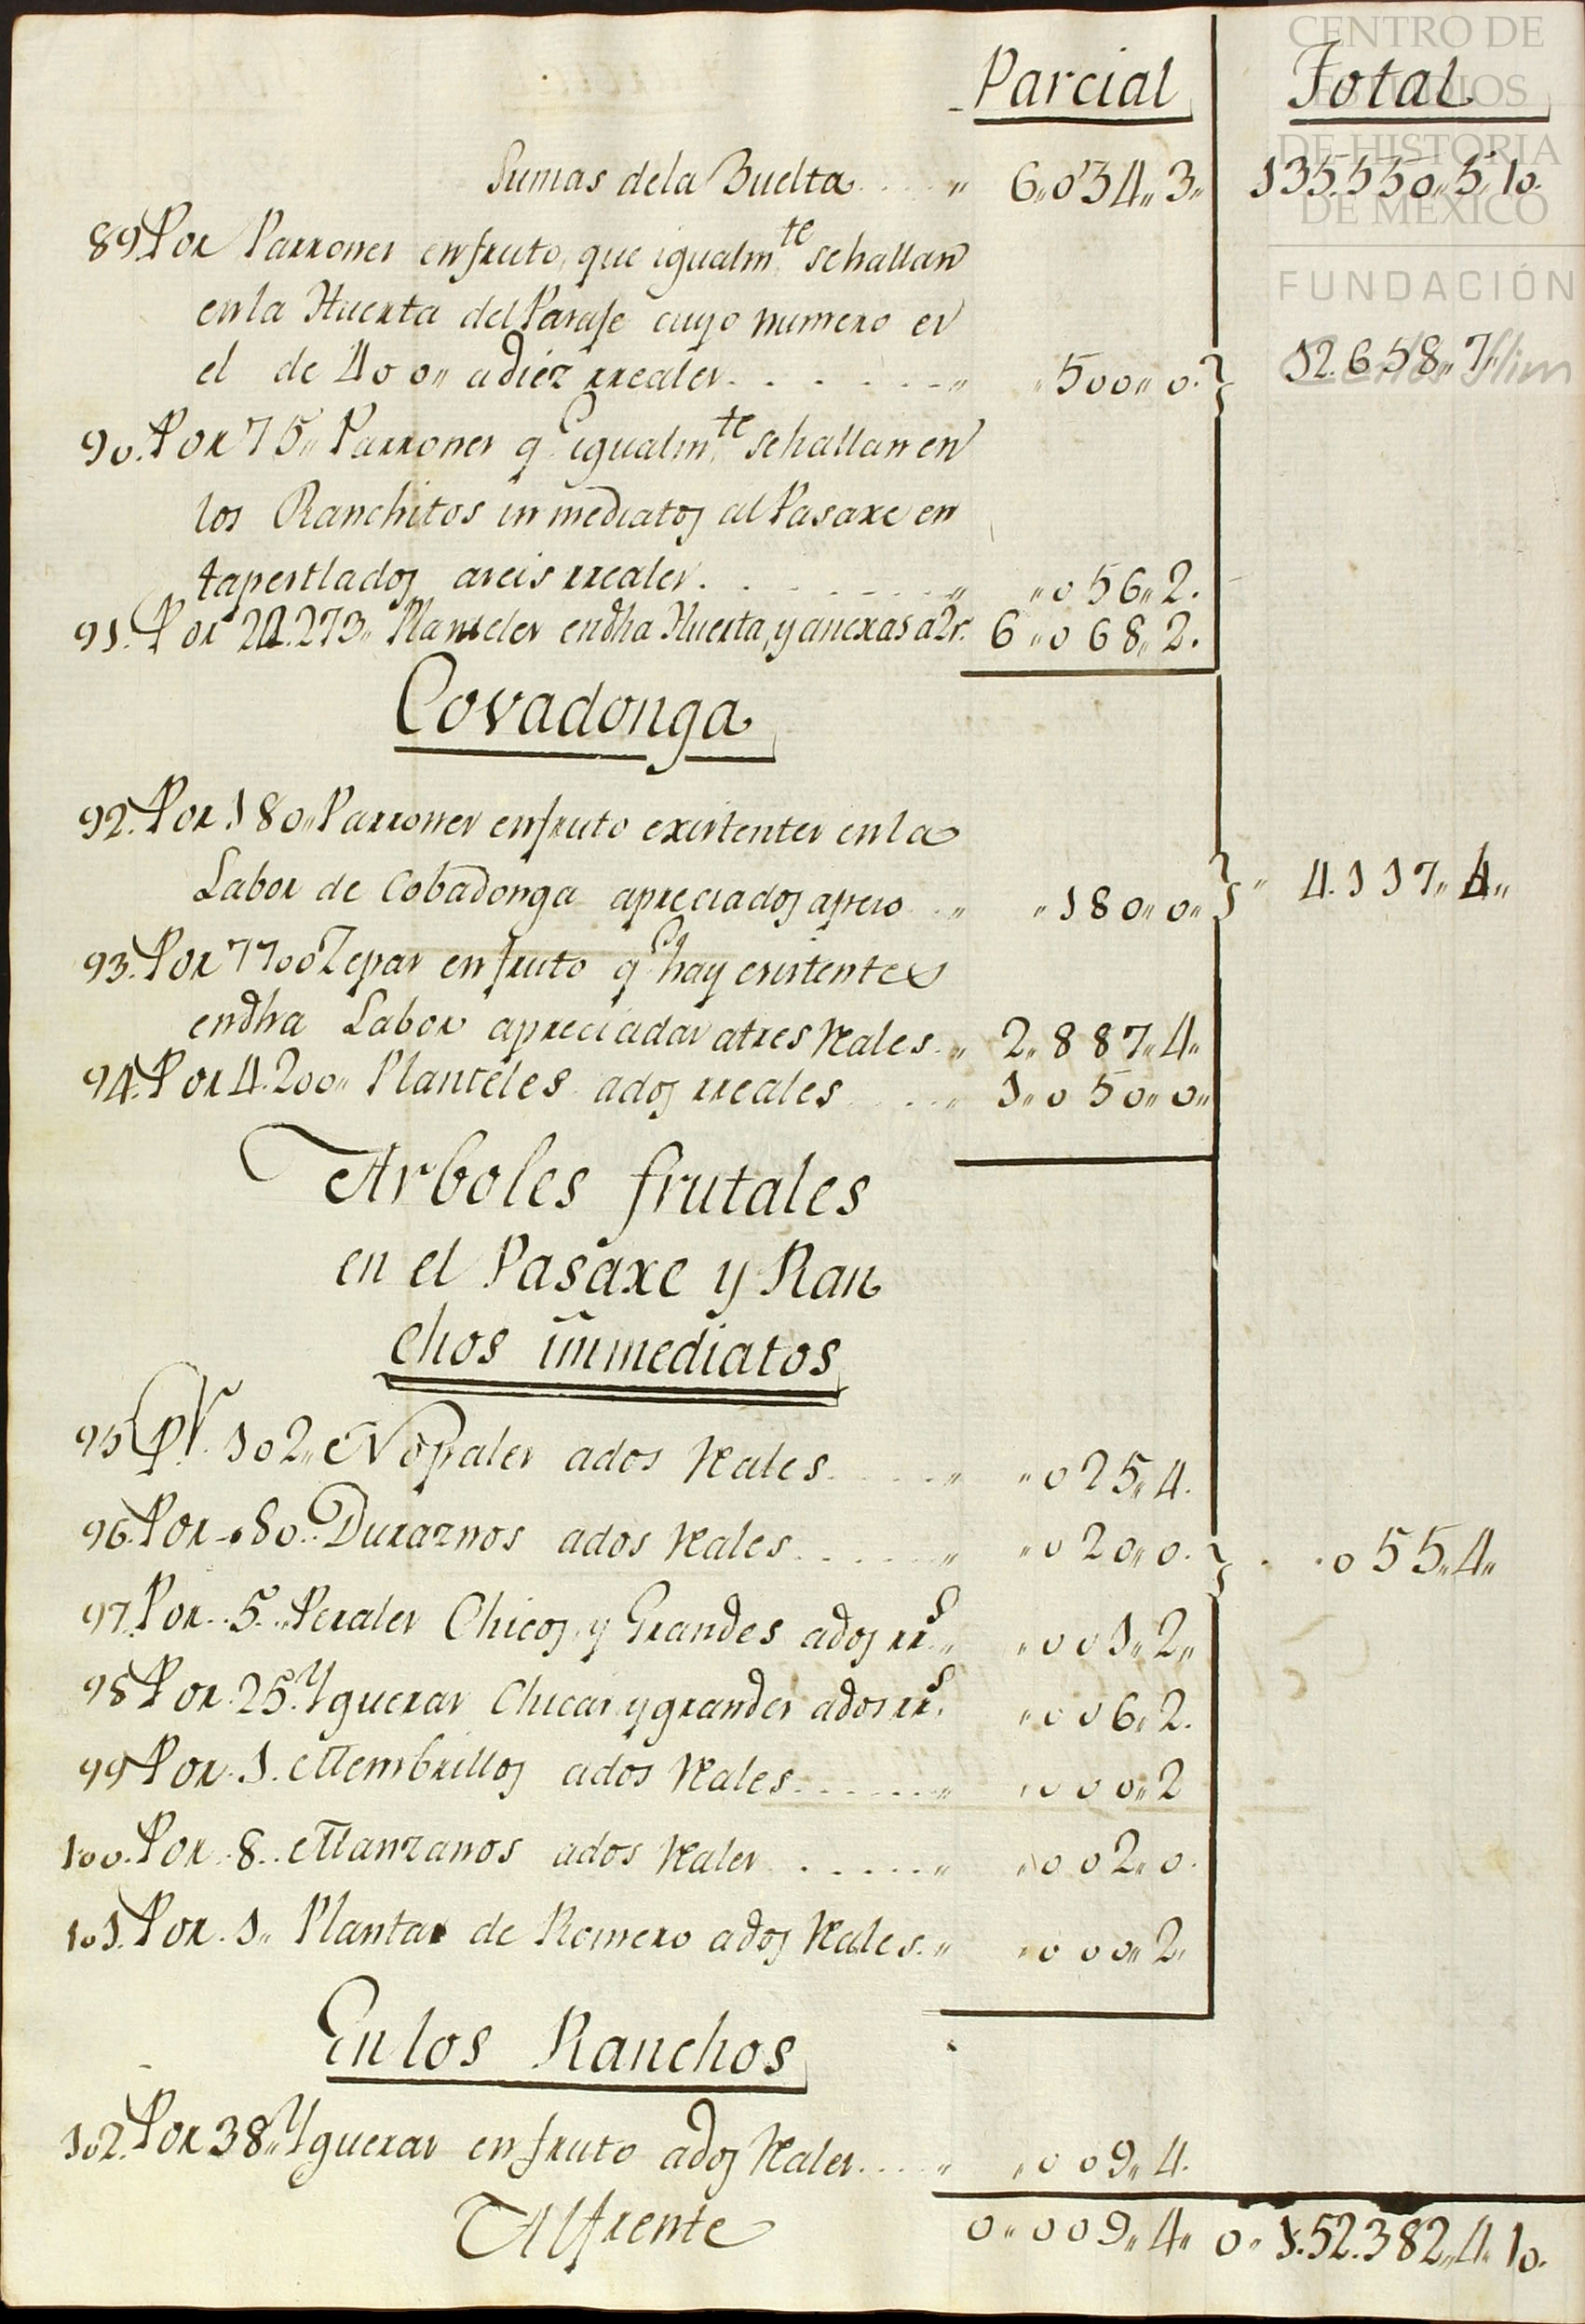 CENTRO DE
ESTUDIOS
DE HISTORIA
DE MÉXICO
FUNDACIÓN
Carlos Slim
Parcial Total
Sumas dela Buelta .... „ 6„034„3„ 135.550„5„10.
89. Por Parrones enfruto, que igualmte. sehallan
enla Huerta del Parage cuyo numero es
el de 400„ adiez rreales. . . . . . . „ „500„0. 12.658„7„
90. Por 75„ Parrones q.e igualmte. sehallan en
los Ranchitos inmediatos al Pasaxe en
tapestlados aseis rreales. . . . . . . „ „056„2.
91. Por 24.273„ Planteles endha Huerta, y anexas a2r. 6„068„2.
Covadonga
92. Por 180„ Parrones enfruto existentes enla
Labor de Cobadonga apreciados apeso .. „ „180„0„ „ 4.117„4„
93. Por 7700 Zepas enfruto q.e hay existentes
endha Labor apreciadas atres Reales. „ 2„887„4„
94. Por 4.200„ Planteles ados rreales .... „ 1„050„0„
Arboles frutales
en el Pasaxe y Ran
chos immediatos
95 Pr. 102„ Nopales ados Reales. . . . „ „025„4.
96. Por 80. Duraznos ados Reales. . . . . . „ „020„0. „055„4„
97. Por 5„ Perales Chicos, y Grandes ados rrs. „ „001„2„
98 Por 25. Ygueras Chicas y grandes ados rrs. „006„2.
99 Por 1. Membrillos ados Reales. . . . . . „ „000„2
100. Por 8. Manzanos ados Reales . . . . . „ „002„0.
101. Por 1„ Planta de Romero ados Reales. „ „000„2„
Enlos Ranchos
102. Por 38„ Ygueras enfruto ados Reales. . . . „ „009„4.
Alfrente 0„009„4„ 0„152.382„4„10.